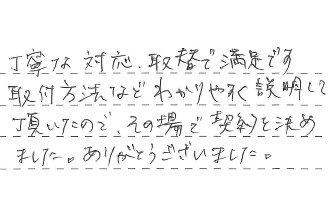 丁寧な対応、取替で満足です
取付方法などわかりやすく説明して
頂いたので、その場で契約を決め
ました。ありがとうございました。